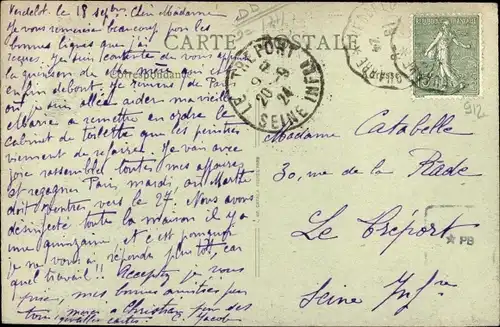 Verdelot. le 18 septbre. Chère Madame
Je vous remercie beaucoup pour les
bonnes lignes que j'ai
reçues. Je suis contente de vous
la guérison de
enfin debout. Je reviens de Paris
où je suis allée aider ma vieille
Maria à remettre en ordre le
cabinet de toilette que les peintres
viennent de refaire. Je vais avec
joie rassembler toutes mes affaires
et regagner Paris, mardi, où Marthe
doit rentrer vers le 27. Nous avons
désinfecté toute la maison il y a
une quinzaine et c'est pourquoi
je ne vous ai répondu plus tôt, car
quel travail !! Acceptez, je vous
prie, mes bonnes amitiés pour
tous, merci à Christian pour ses
cartes. C. Jacob
CARTE POSTALE
Correspondance
LE TREPORT
20 - 9
24
SEINE INFRE
912
Madame Catabelle
30, rue de la Rade
Le Tréport
Seine Infre
PB